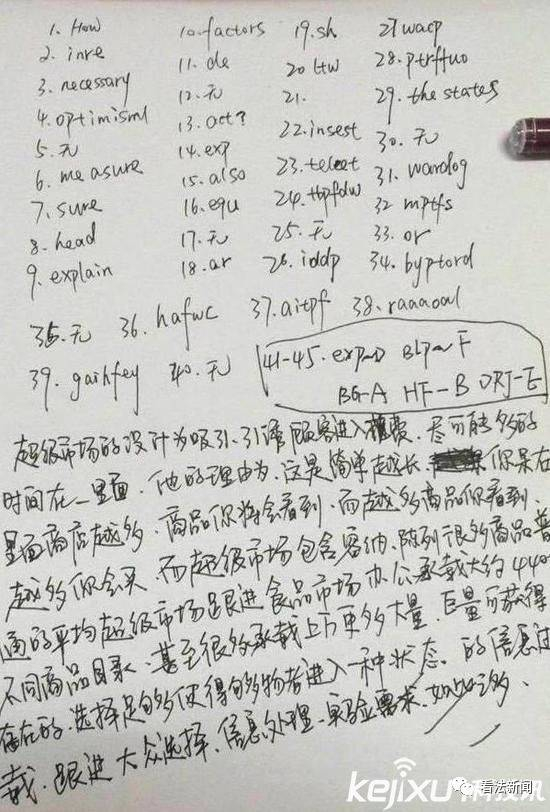 1. How 10. factors 19. sh 27 wacp
2. inre 11. de 20 ltw 28. ptrffuo
3. necessary 12. 无 21. 29. the states
4. optimisml 13. act? 22. insest 30. 无
5. 无 14. exp 23. teleet 31. wardog
6. measure 15. also 24. tbpfdw 32 mptfs
7. sure 16. equ 25. 无 33. or
8. head 17. 无 26. iddp 34. byptord
9. explain 18. ar
35. 无 36. hafwc 37. aitpf 38. raaaoal
39. gaihfey 40. 无 41-45. exp-D BLP-F
BG-A HF-B DRJ-E
超级市场的设计为吸引、引诱顾客进入 尽可能多的
时间在一里面. 他的理由为.这是简单越长 你呆在
里面商店越多. 商品你将会看到.而越多商品你看到.
越多你会买.而超级市场包含容纳.陈列很多商品普
通的平均超级市场跟进食品市场办公承载大约44000
不同商品目录.甚至很多承载上万更多大量.巨量可获得
存在的.选择足够使得购物者进入一种状态.的信息过
载.跟进大众选择.信息处理.实验需求.如此之多.
kejixu
看法新闻